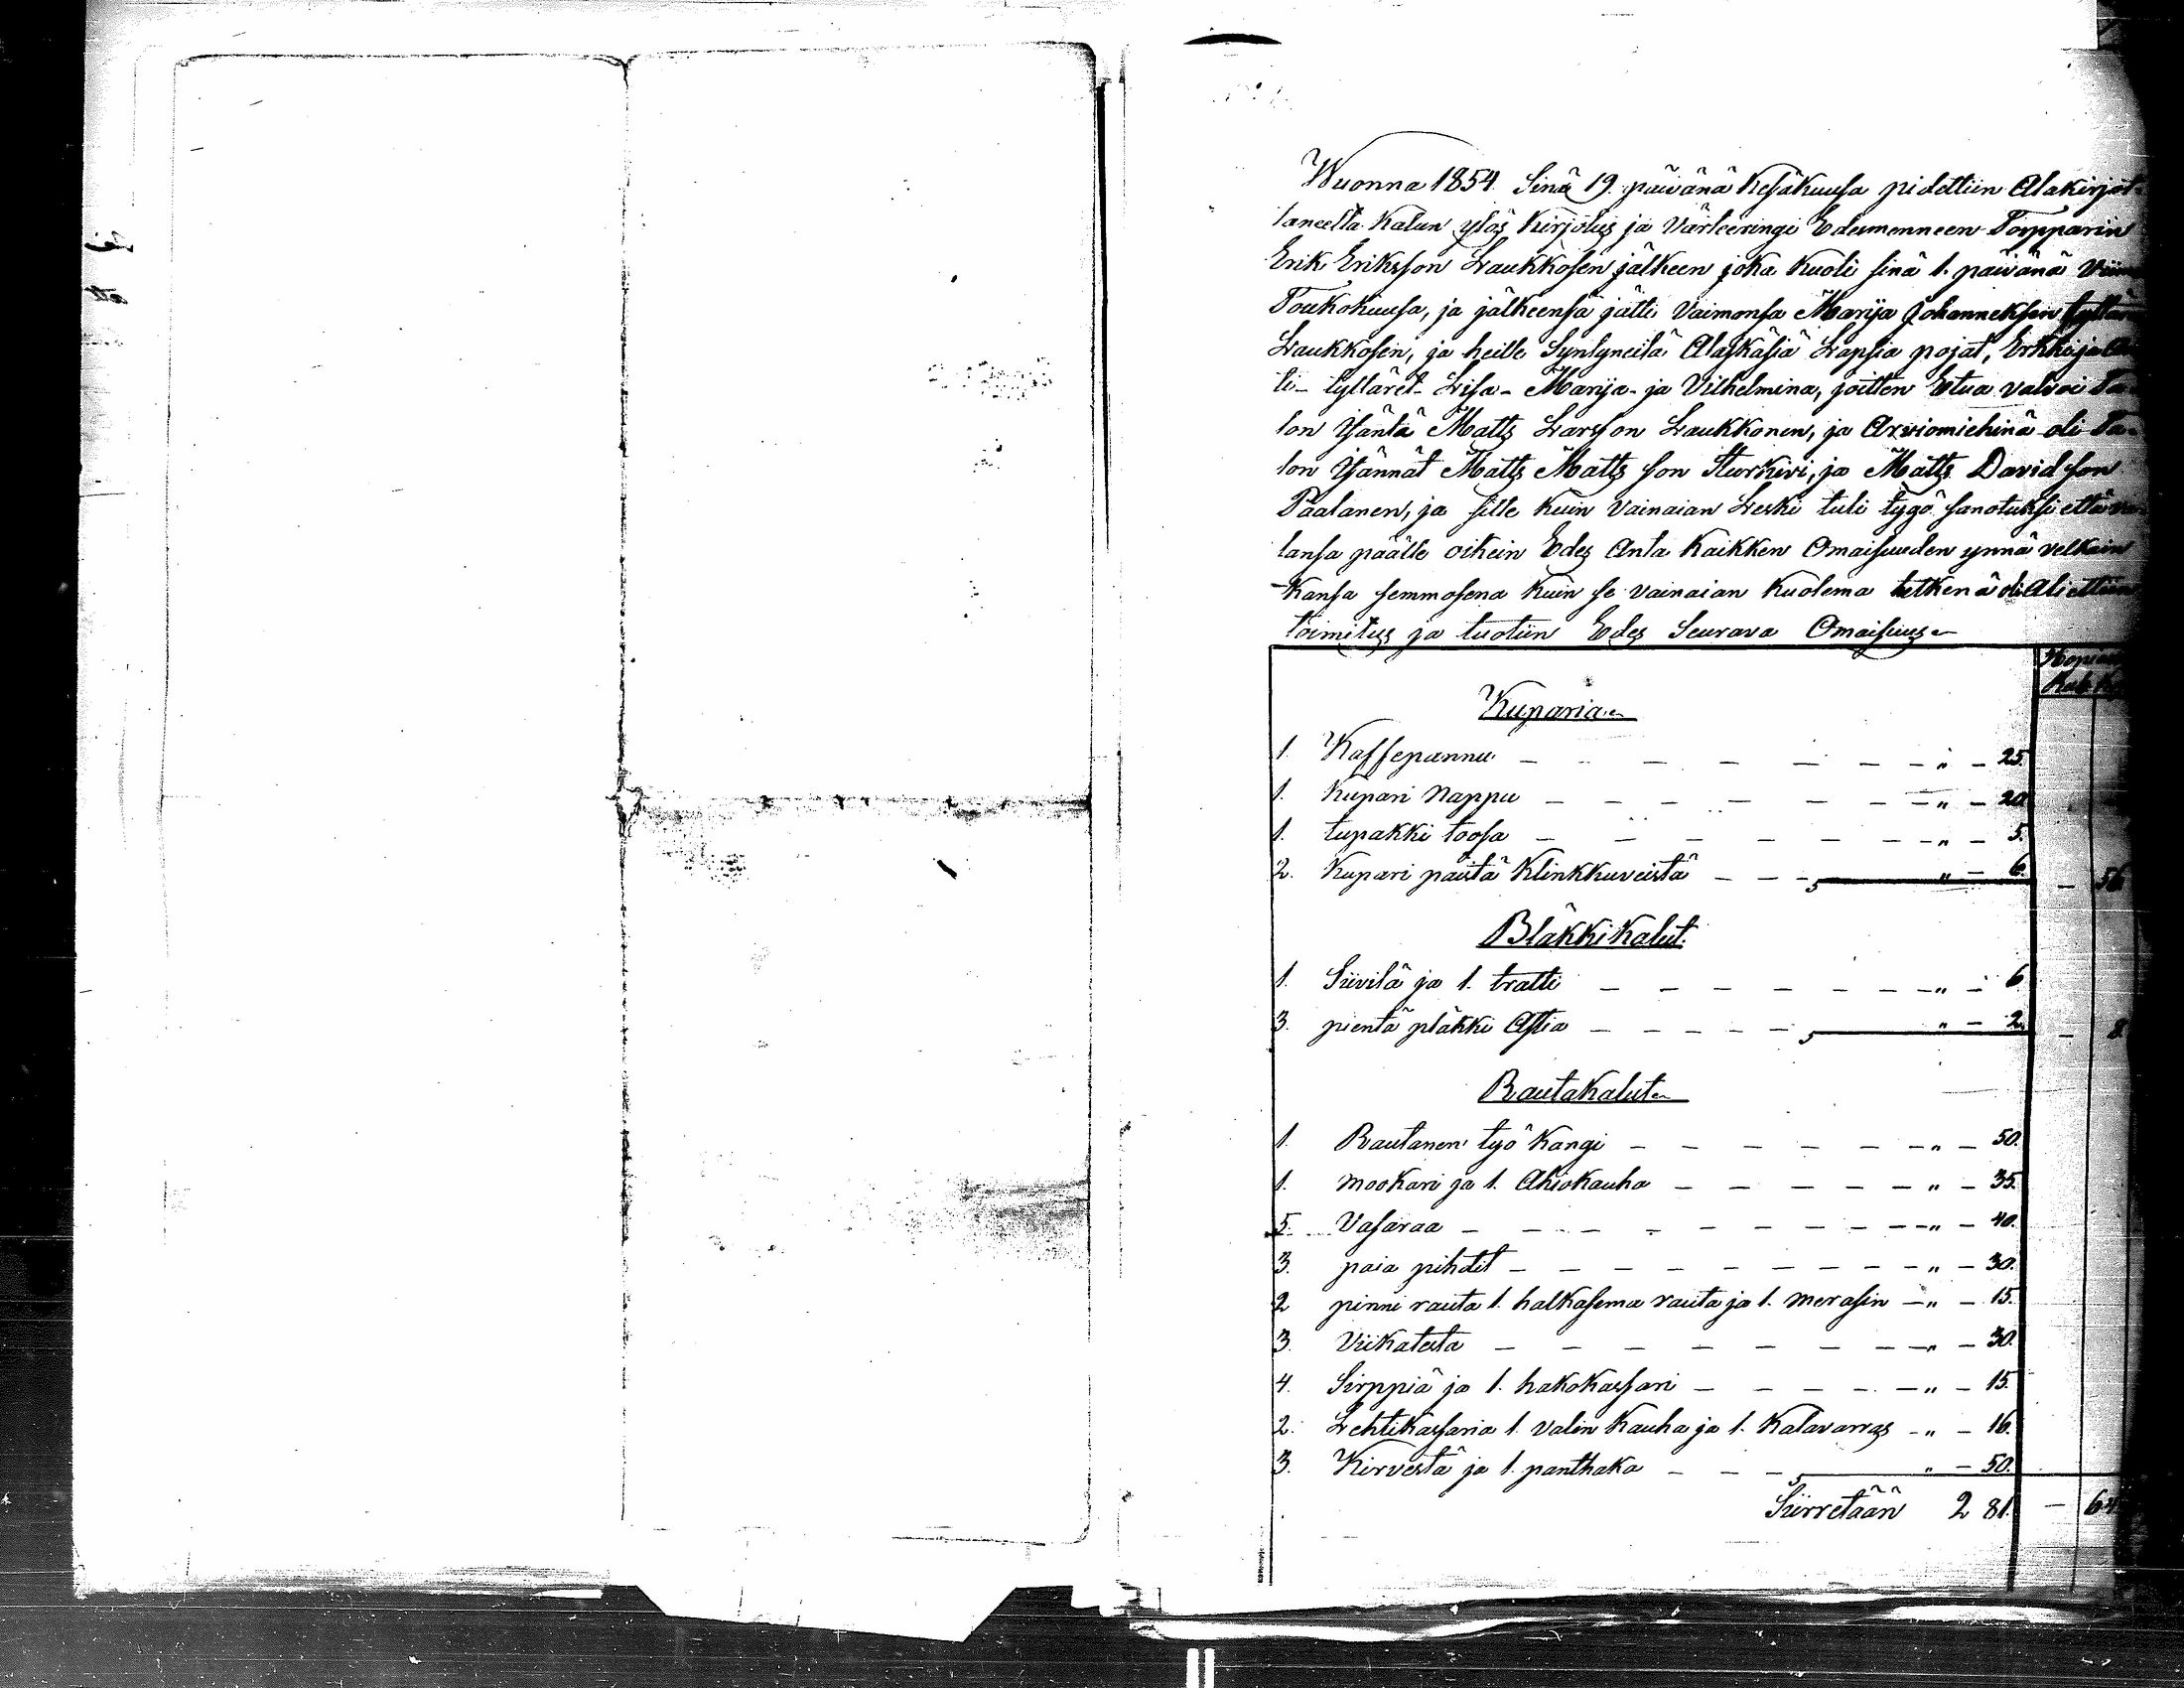 Wuonna 1854 Sinä 19. päivänä Kesäkuusa pidettiin Alakirjot-
taneelta Kalun ylös kirjotus ja Värteeringi Edesmenneen Torpparin
Erik Eriksson Laukkosen jälkeen joka kuoli sinä 1. päivänä Viime
Toukokuusa, ja jälkeensä jätti Vaimonsa Marija Johanneksen tyttären
Laukkosen, ja heille Syntyneitä Alaskäsiä Lapsia pojat, Erkki ja
ti- tyttäret- Lisa- Marija- ja Vilhelmina, joitten Etua valvoi Ta-
lon Isäntä Matts Larsson Laukkonen, ja Arviomiehinä oli Ta-
lon Isännät Matts Mattsson Sturkivi, ja Matts Davidson
Paalanen, ja sille kuin Vainaian Leski tuli tygö sanotuksi että
lansa päälle oikein Edes Anta Kaikken Omaisuuden ynnä velkain
Kansa semmosena kuin se vainaian Kuolema hetkenä oli Aliettiin
toimitus ja tuotiin Edes Seurava Omaisuus
Hopiaa
Rub. Ko
Kuparia
1. Kaffepannu — " — 25.
1. Kupari Nappu — " — 20
1. tupakki toosa — " — 5.
2. Kupari päistä Klinkkuveistä — " — 6. — 56
Bläkki Kalut.
1. Siivilä ja 1. tratti — " — 6
3. pientä pläkki Astia — " — 2. — 8.
Rautakalut
1. Rautanen työ Kangi — " — 50.
1. mookari ja 1. Ahiokauha — " — 35.
5. Vasaraa — " — 40.
3. paia pihdit — " — 30.
2 pinni rauta 1. halkasema rauta ja 1. merasin — " — 15.
3. Viikatesta — " — 30.
4. Sirppiä ja 1. hakokassari — " — 15.
2. Lehtikassaria 1. valin Kauha ja 1. Kalavarras — " — 16.
3. Kirvestä ja 1. panthaka — " — 50.
Siirretään 2 81. — 64